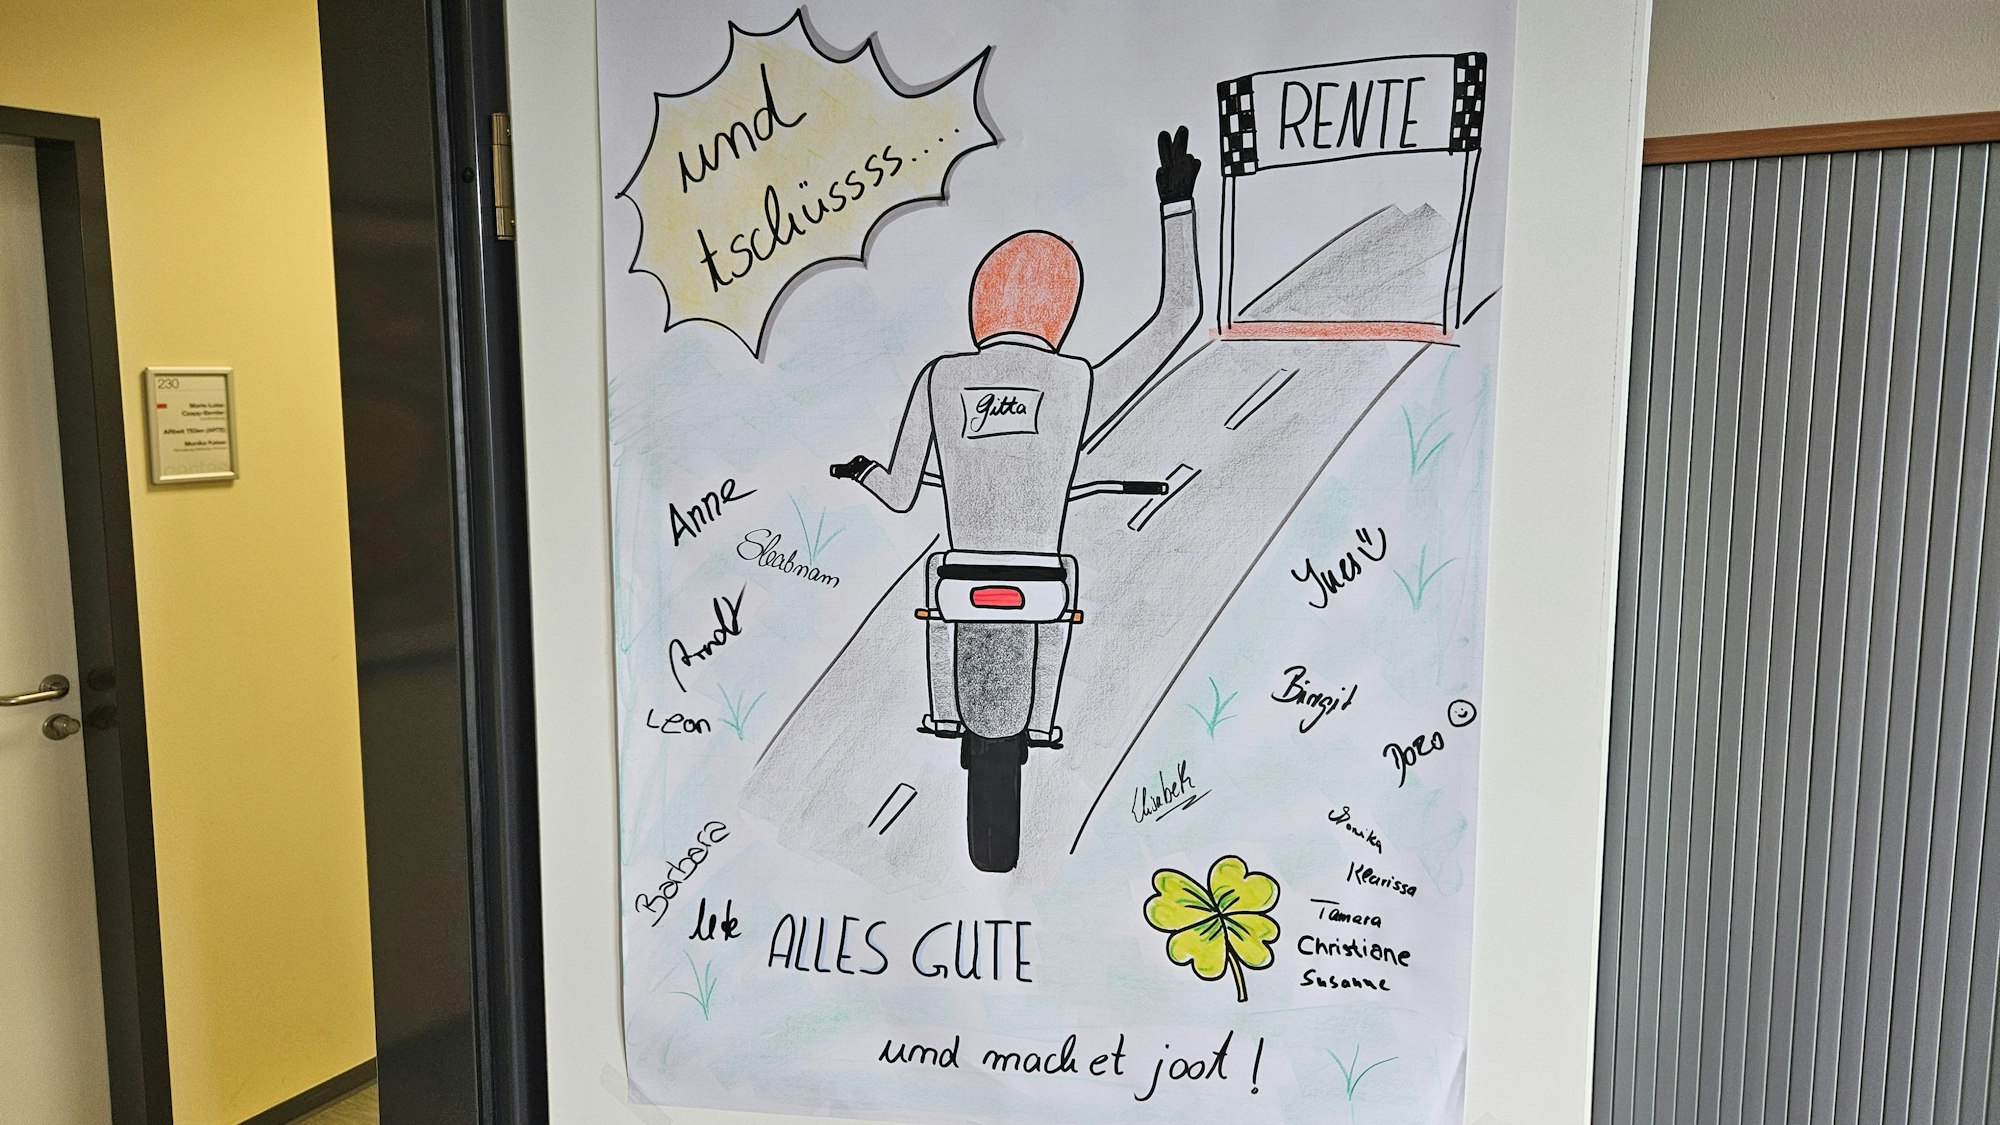 und
tschüssss....
RENTE
Gitta
Anne
Shabnam
Arndt
Leon
Barbara
Ute
Yves
Birgit
Doro
Elisabeth
Monika
Klarissa
Tamara
Christiane
Susanne
ALLES GUTE
und machet joot!
230
Marie-Luise
Monika Kaiser